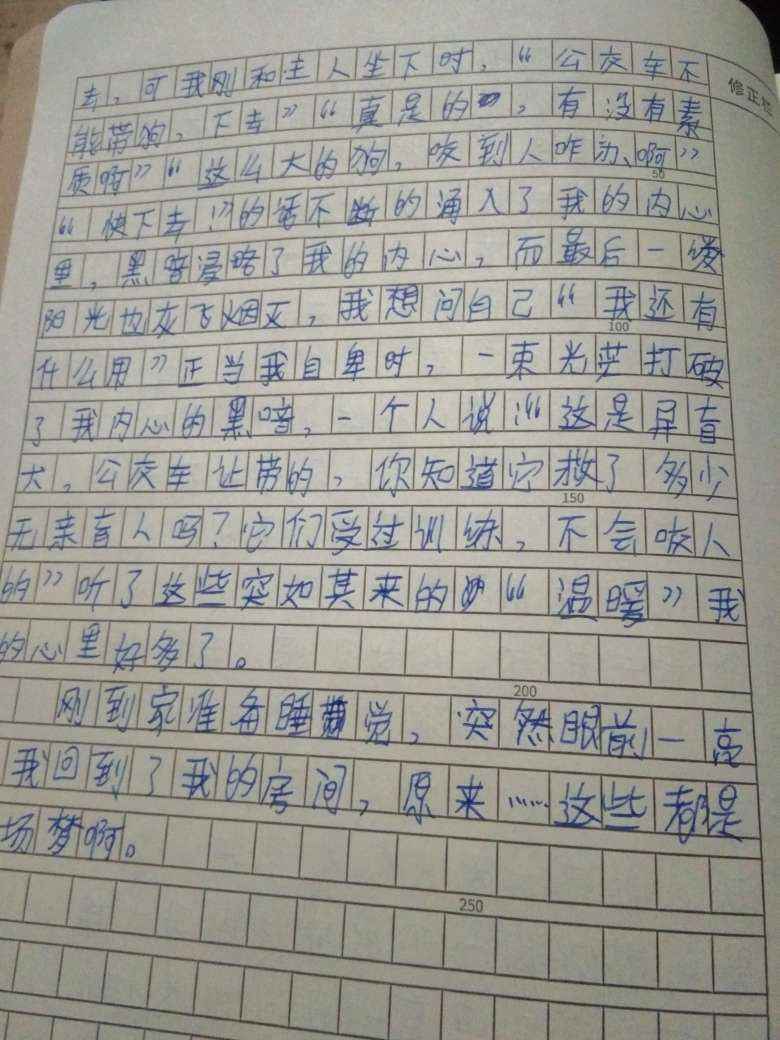 去，可我刚和主人坐下时，“公交车不
修正栏
能带狗，下去”“真是的，有没有素
质啊”“这么大的狗，咬到人咋办、啊”
50
“快下去！”的话不断的涌入了我的内心
里，黑暗浸略了我的内心，而最后一缕
阳光也灰飞烟灭，我想问自己“我还有
100
什么用”正当我自卑时，一束光芒打破
了我内心的黑暗，一个人说：“这是导盲
犬，公交车让带的，你知道它救了多少
150
无亲盲人吗？它们受过训练，不会咬人
的”听了这些突如其来的“温暖”我
的心里好多了。
200
刚到家准备睡觉，突然眼前一亮
我回到了我的房间，原来……这些都是
场梦啊。
250